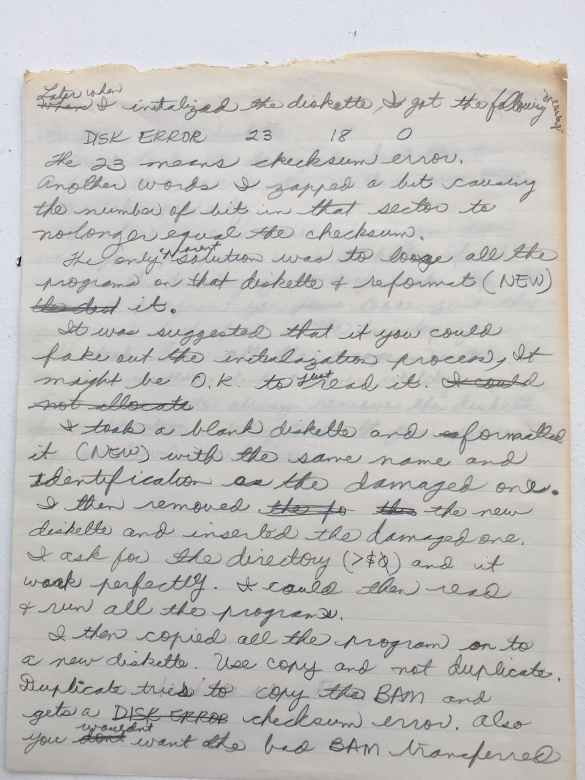 Later when
when I initalized the diskette, I got the following message
DISK ERROR 23 18 0
The 23 means checksum error.
Another words I zapped a bit causing
the number of bit in that sector to
no longer equal the checksum.
The only apparent solution was to loose all the
programs on that diskette & reformat (NEW)
it.
It was suggested that if you could
fake out the initialazation process, It
might be O.K. to just read it. I could
not allocate
I took a blank diskette and formatted
it (NEW) with the same name and
identification as the damaged one.
I then removed the new
diskette and inserted the damaged one.
I ask for the directory (>$0) and it
work perfectly. I could then read
& run all the programs.
I then copied all the program on to
a new diskette. Use copy and not duplicate.
Duplicate tries to copy the BAM and
gets a DISK ERROR checksum error. Also
you dont wouldnt want the bad BAM transferred